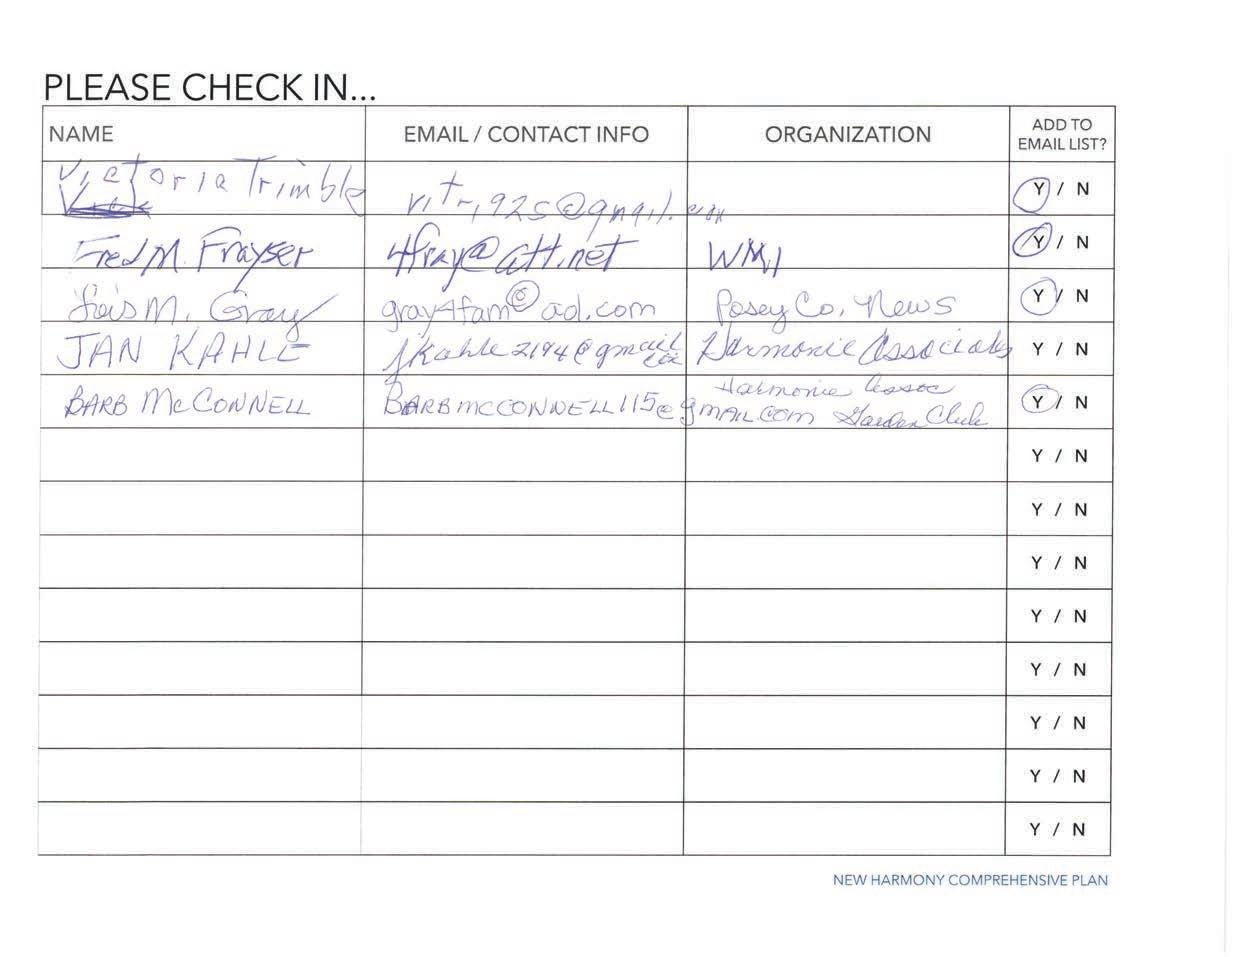 PLEASE CHECK IN...
NAME EMAIL / CONTACT INFO ORGANIZATION ADD TO EMAIL LIST?
Victoria Trimble Y / N
Fred M. Frayser 4fray@att.net Y / N
Lois M. Gray gray4fam@aol.com Posey Co. News Y / N
JAN KAHLE jkahle2194@gmail Harmonie Associates Y / N
BARB McCONNELL BARBMCCONNELL115@gmAIL.COM Harmonie Assoc Garden Club Y / N
Y / N
Y / N
Y / N
Y / N
Y / N
Y / N
Y / N
Y / N
NEW HARMONY COMPREHENSIVE PLAN